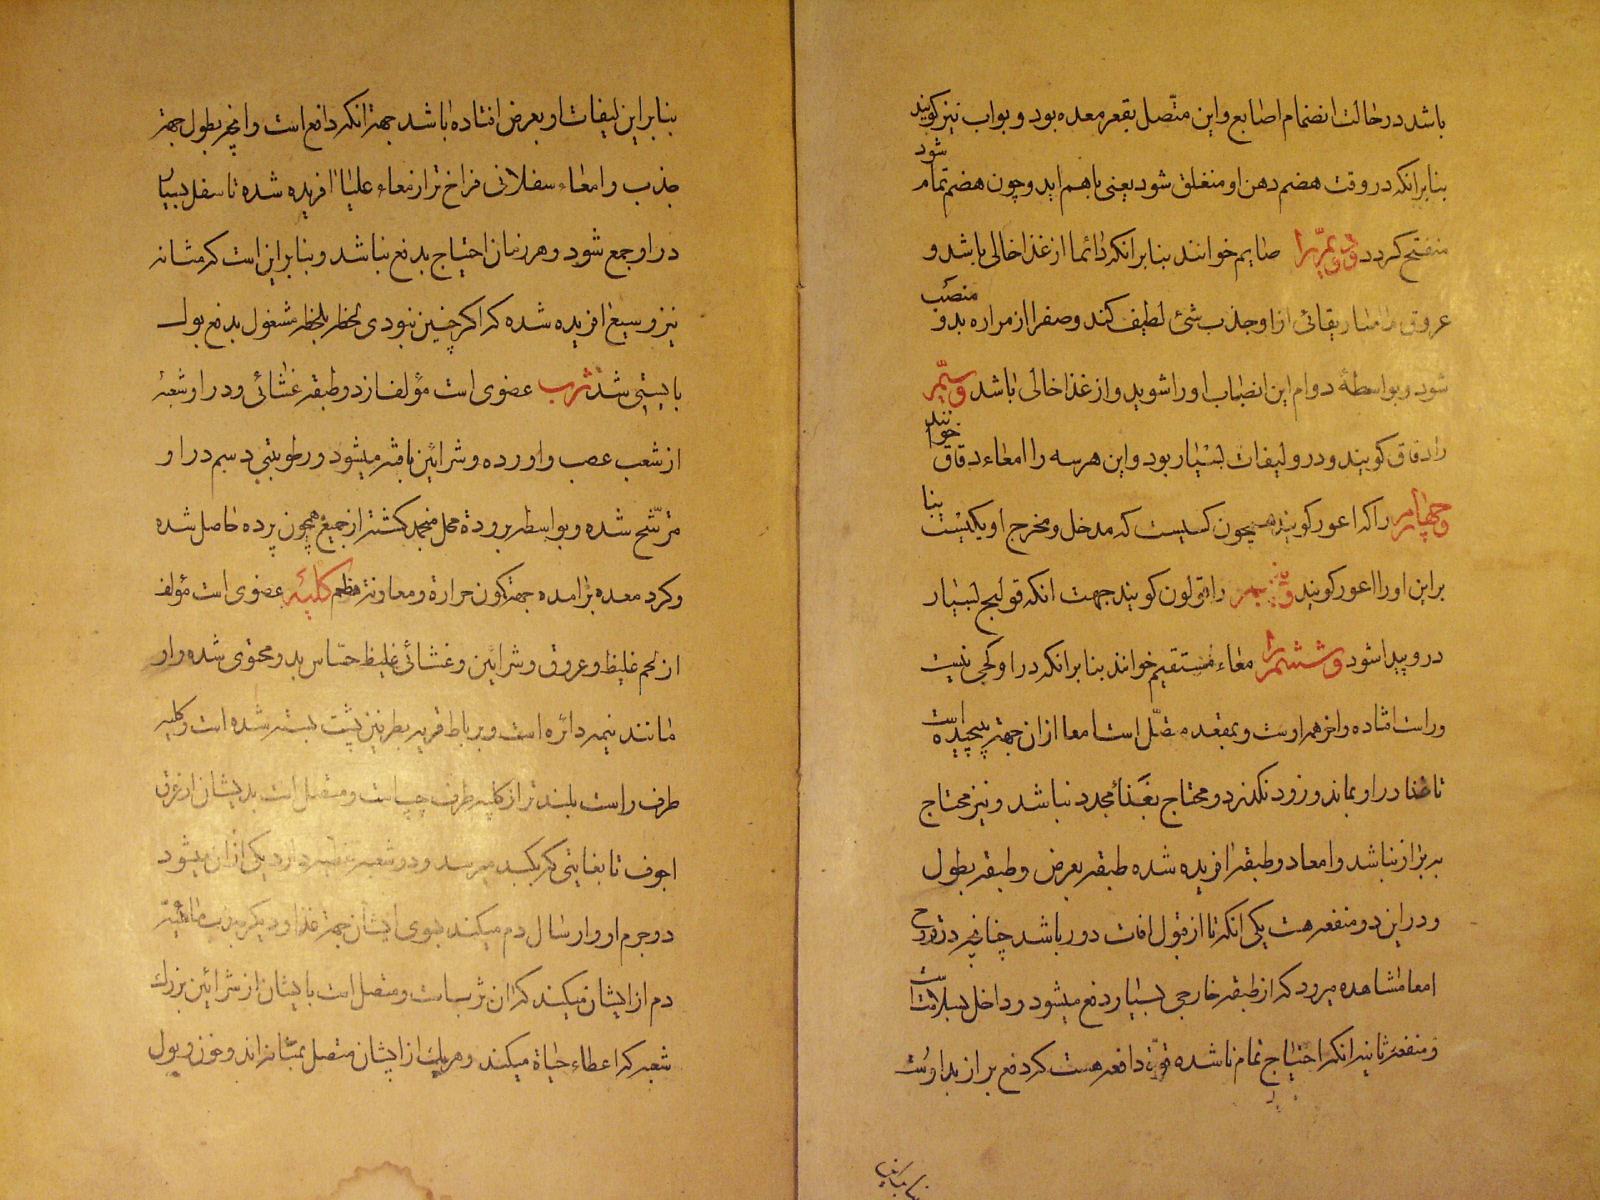 باشد در حالت انضمام اصابع و این متّصل بقعر معده بود و بواب نیز کویند
بنابرانکه در وقت هضم دهن او منغلق شود یعنی باهم اید و چون هضم تمام شود
منفتح کردد و دویمر را صایم خوانند بنابرانکه دائما از غذا خالی باشد و
عروق ماساریقائی از او جذب شئ لطیف کند و صفرا از مراره بدو منصب
شود و بواسطهٔ دوام این انصباب او را شوید و از غذا خالی باشد و سیّم
را دقاق کویند و درو لیفات بسیار بود و این هرسه را امعاء دقاق خوانند
و چهارم را که اعور کویند همچون کیسیست که مدخل و مخرج او یکیست بنا
براین اورا اعور کویند و پنجم را قولون کویند جهت انکه قولنج بسیار
درو پیدا شود و ششم را معاء مستقیم خوانند بنابرانکه در او کجی نیست
و راست افتاده و اخر همه اوست و بمقعد متصّل است امعا ازان جهة پیچیده است
تا غذا در او بماند و زود نکذرد و محتاج بغذاء مجدد نباشد و نیز محتاج
به براز نباشد و امعا دو طبقه افریده شده طبقه بعرض و طبقه بطول
و در این دو منفعه هست یکی انکه تا از قبول افات دور باشد چنانچه در قروح
امعا مشاهده میرود که از طبقه خارجی بسیار دفع میشود و داخل بسلامت است
و منفعة ثانیه انکه احتیاج تمام باشد قوّت دافعه هست که دفع براز بدا وست
بنابراین
بنابراین لیفات او بعرض افتاده باشد جهة انکه دافع است و انچه بطول جهة
جذب و امعاء سفلانی فراخ تر از معاء علیا افریده شده تا سفل بسیار
در او جمع شود و هر زمان احتیاج بدفع نباشد و بنابراین است که مثانه
نیز وسیع افریده شده که اکر چنین نبودی لحظه بلحظه مشغول بدفع بول
بایستی شد ثرب عضوی است مؤلف از دو طبقه غشائی و در او شعبهٔ
از شعب عصب و اورده و شرائین یافته میشود و رطوبتی دسم در او
مترشّح شده و بواسطه برودة محل منجمد کشته از جمیع همچون پرده حاصل شده
و کرد معده برامده جهة کون حرارة و معاونة هضم کلیه عضوی است مؤلف
از لحم غلیظ و عروق و شرائین و غشائی غلیظ حسّاس بدو محتوی شده و او
مانند نیمه دائره است و برباط قریه بطرنیز پشت بسته شده است و کلیه
طرف راست بلندتر از کلیه طرف چپ است و متصل است بدیشان از عرق
اجوف تا بغایتی که بکبد میرسد و دو شعبه دارد یکی ازان میشود
در جرم او و ارسال دم میکند بسوی ایشان جهة غذا و دیکر
دم از ایشان میکند که ان و متصل است بایشان از شرائین بزرک
شعبه که اعطاء حیاة میکند و هریک از ایشان متصل بمثانه اند و بول